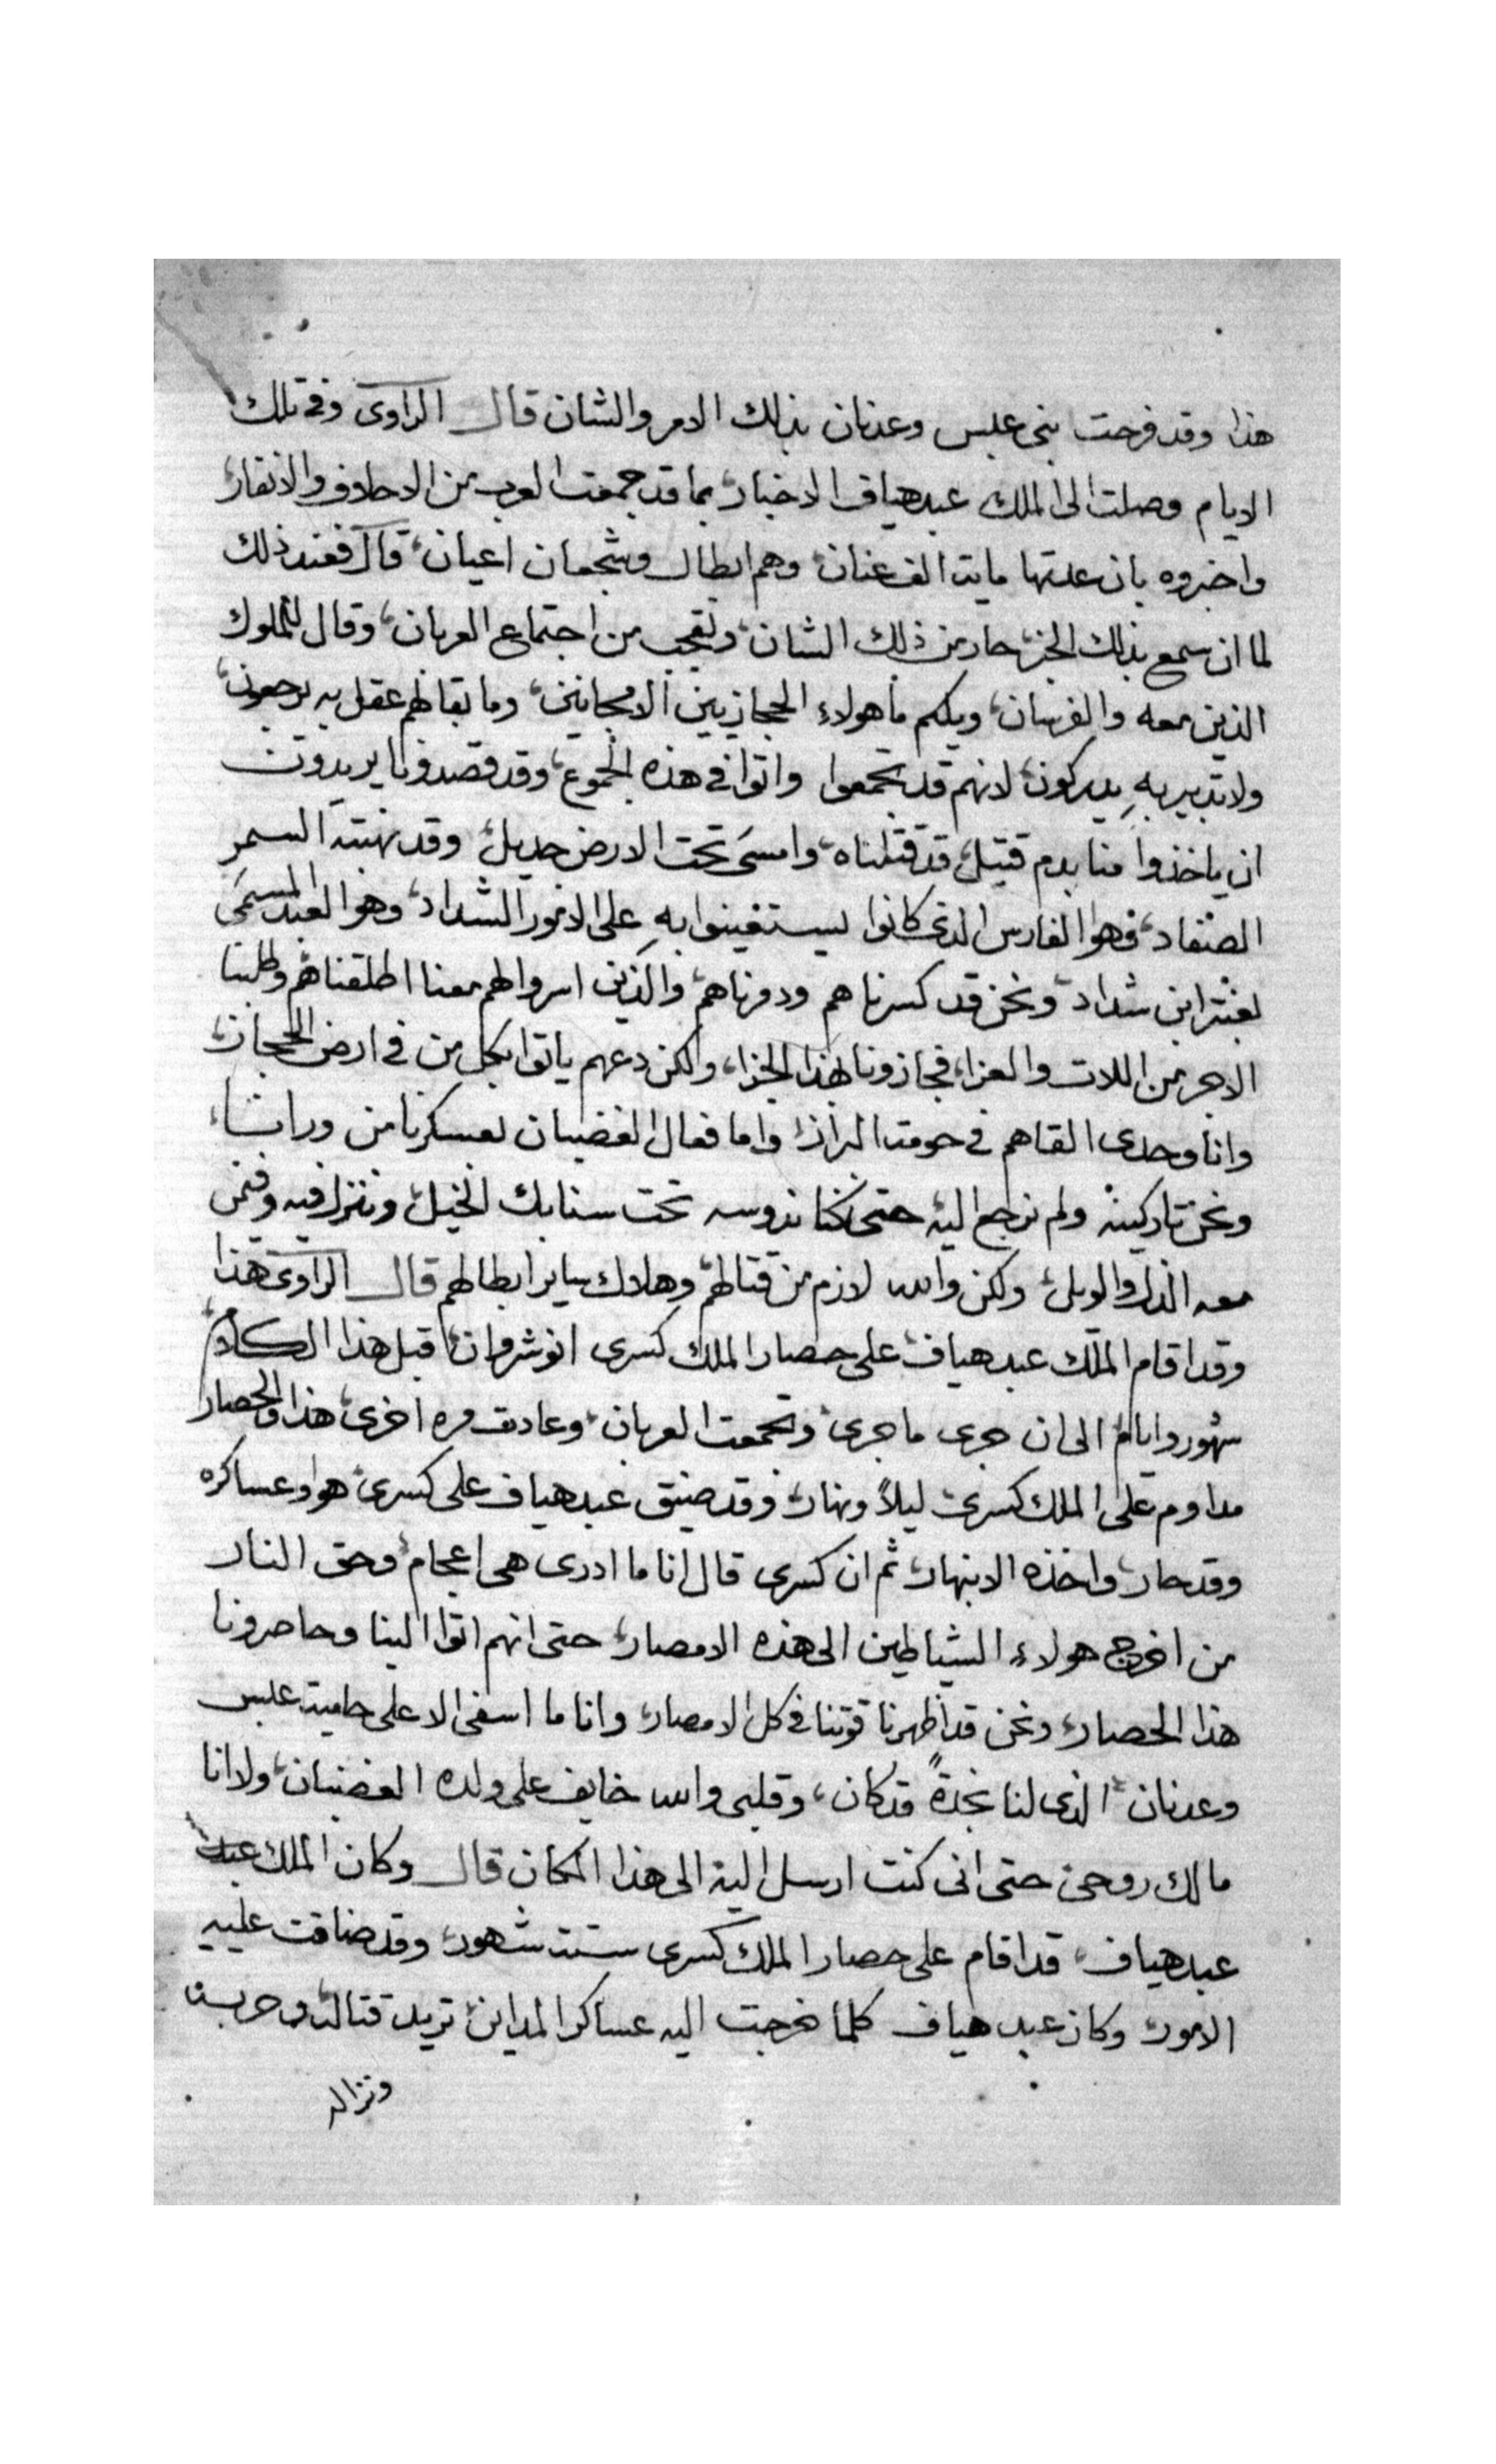 هذا وقد فرحت بنى عبس وعدنان بذلك الامر والشان قال الراوى وفى تلك
الايام وصلت الى الملك عبد هياف الاخبار بما قد جمعت العرب من الاحلاف والانفار
واخبروه بان عدتها مايت الف عنان وهم ابطال وشجعان اعيان قال فعند ذلك
لما ان سمع بذلك الخبر حار من ذلك الشان وتعجب من اجتماع العربان وقال للملوك
الذين معه والفرسان ويلكم ما هولاء الحجازيين الا مجانين وما بقا لهم عقل به يرجعون
ولا تدبير به يدركون لانهم قد تجمعوا واتوا فى هذه الجموع وقد قصدونا يريدون
ان ياخذوا منا بدم قتيل قد قتلناه وامسى تحت الارض جديل وقد نهبته السمر
الصفاد فهو الفارس الذى كانوا يستغينوا به على الامور الشداد وهو العبد المسمى
بعنتر ابن شداد ونحن قد كسرناهم ودمرناهم والذين اسروا لهم معنا اطلقناهم وطلبنا
الاجر من اللات والعزا فجازونا بهذا الجزا ولكن دعهم ياتوا بكل من فى ارض الحجاز
وانا وحدى القاهم فى حومت البراز واما فعال الغضبان لعسكرنا من وراننا
ونحن تاركينه ولم نرجع اليه حتى كنا ندوسه تحت سنابك الخيل وننزل فيه وفمن
معه الذل والويل ولكن والله لازم من قتالهم وهلاك ساير ابطالهم قال الراوى هذا
وقد اقام الملك عبد هياف على حصار الملك كسرى انوشروان قبل هذا الكلام
شهور وايام الى ان جرى ما جرى وتجمعت العربان وعادت مره اخرى هذا والحصار
مداوم على الملك كسرى ليلاً ونهار وقد ضيق عبد هياف على كسرى هو وعساكره
وقد حار واخذه الانبهار ثم ان كسرى قال انا ما ادرى هى اعجام وحق النار
من اخرج هولاء الشياطين الى هذه الامصار حتى انهم اتوا الينا وحاصرونا
هذا الحصار ونحن قد اظهرنا قوتنا فى كل الامصار وانا ما اسفى الا على حاميت عبس
وعدنان الذى لنا نجدةً قد كان وقلبى والله خايف على ولده الغضبان ولا انا
مالك روحى حتى انى كنت ارسل اليه الى هذا المكان قال وكان الملك عبد
عبد هياف قد اقام على حصار الملك كسرى ستت شهور وقد ضاقت عليه
الامور وكان عبد هياف كلما خرجت اليه عساكر المداين تريد قتاله وحربه
ونزاله